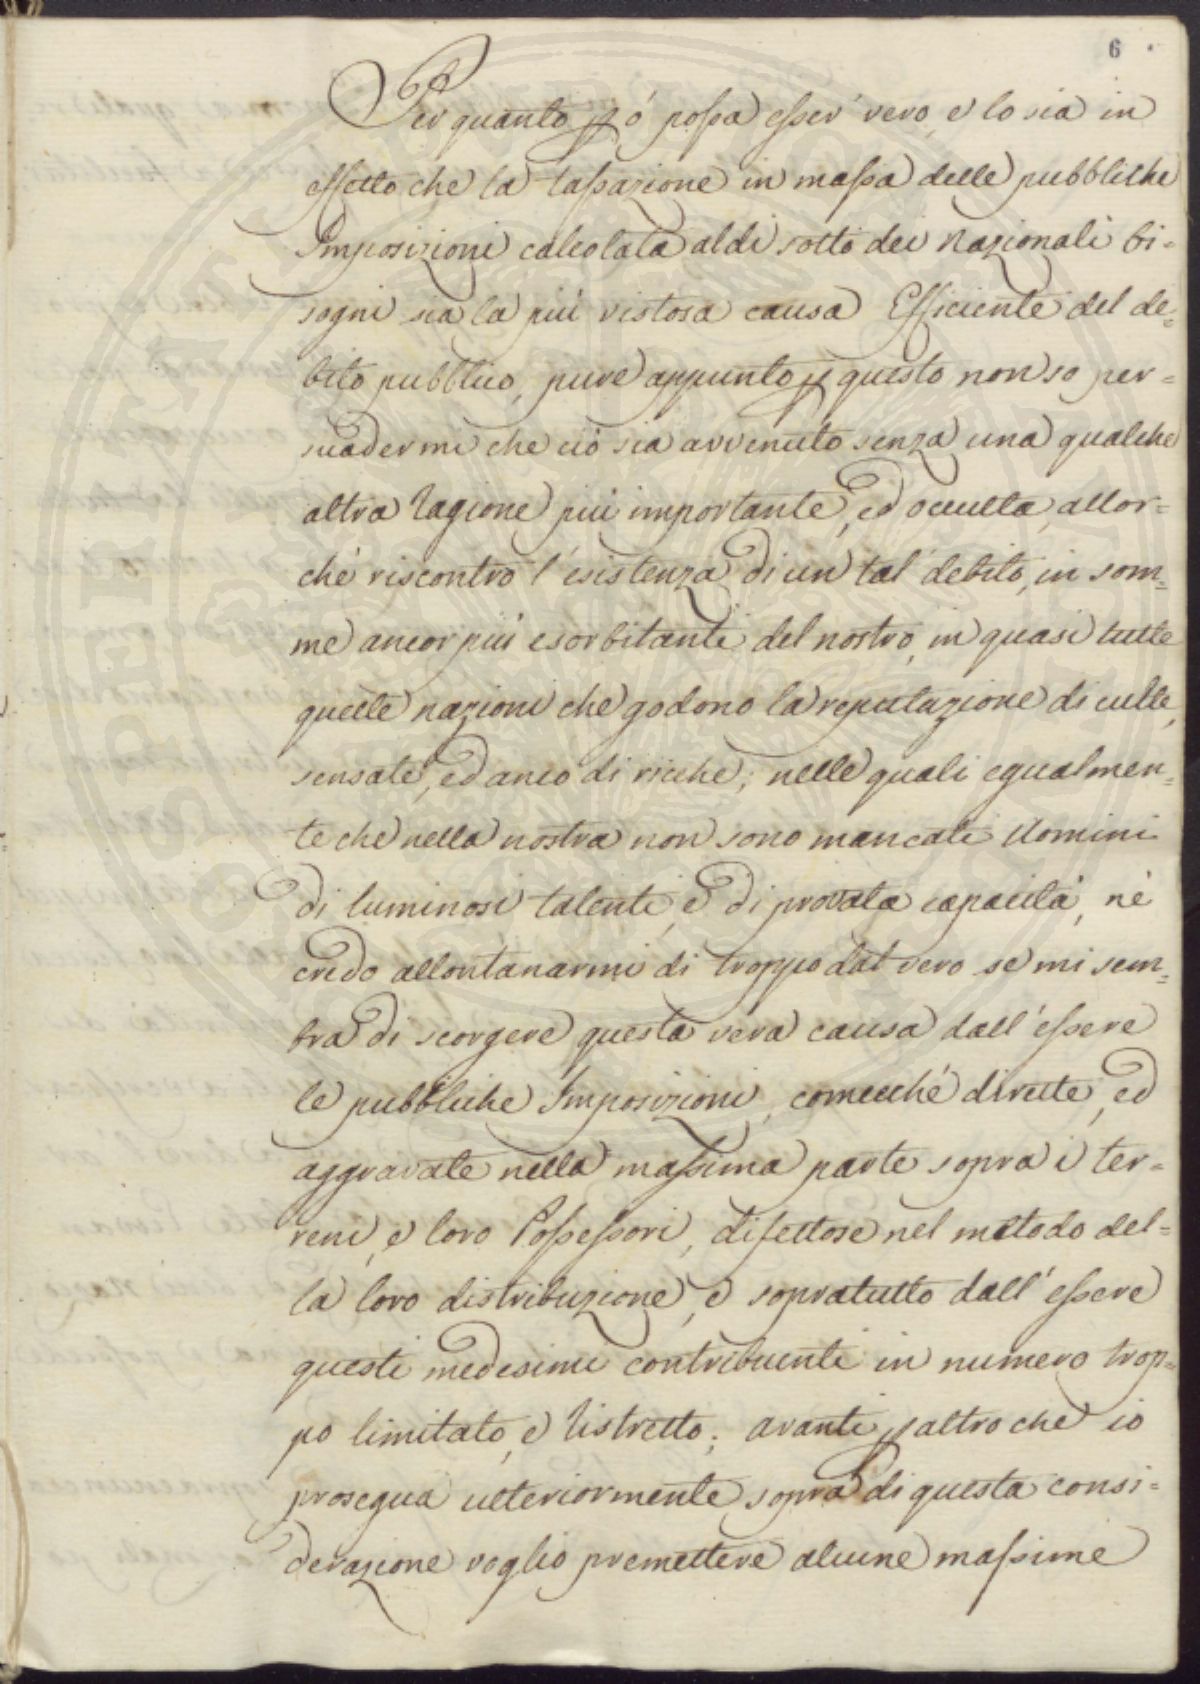 6
Per quanto però possa esser' vero, e lo sia in
effetto che la tassazione in massa delle pubbliche
Imposizioni calcolata al di sotto dei Nazionali bi=
sogni sia la più vistosa causa Efficiente del de=
bito pubblico, pure appunto per questo non so per=
suadermi che ciò sia avvenuto senza una qualche
altra Ragione più importante, ed occulta, allor=
chè riscontro l'esistenza di un tal' debito, in som=
me ancor più esorbitanti del nostro, in quasi tutte
quelle nazioni che godono la reputazione di culte,
sensate, ed anco di ricche; nelle quali egualmen=
te che nella nostra non sono mancati Uomini
di luminosi talenti, e di provata capacità, nè
credo allontanarmi di troppo dal vero se mi sem=
bra di scorgere questa vera causa dall'essere
le pubbliche Imposizioni, comecché dirette, ed
aggravate nella massima parte sopra i ter=
reni, e loro Possessori, difettose nel metodo del=
la loro distribuzione, e sopratutto dall'essere
questi medesimi contribuenti in numero trop=
po limitato, e Ristretto; avanti per altro che io
prosegua ulteriormente sopra di questa consi=
derazione voglio premettere alcune massime